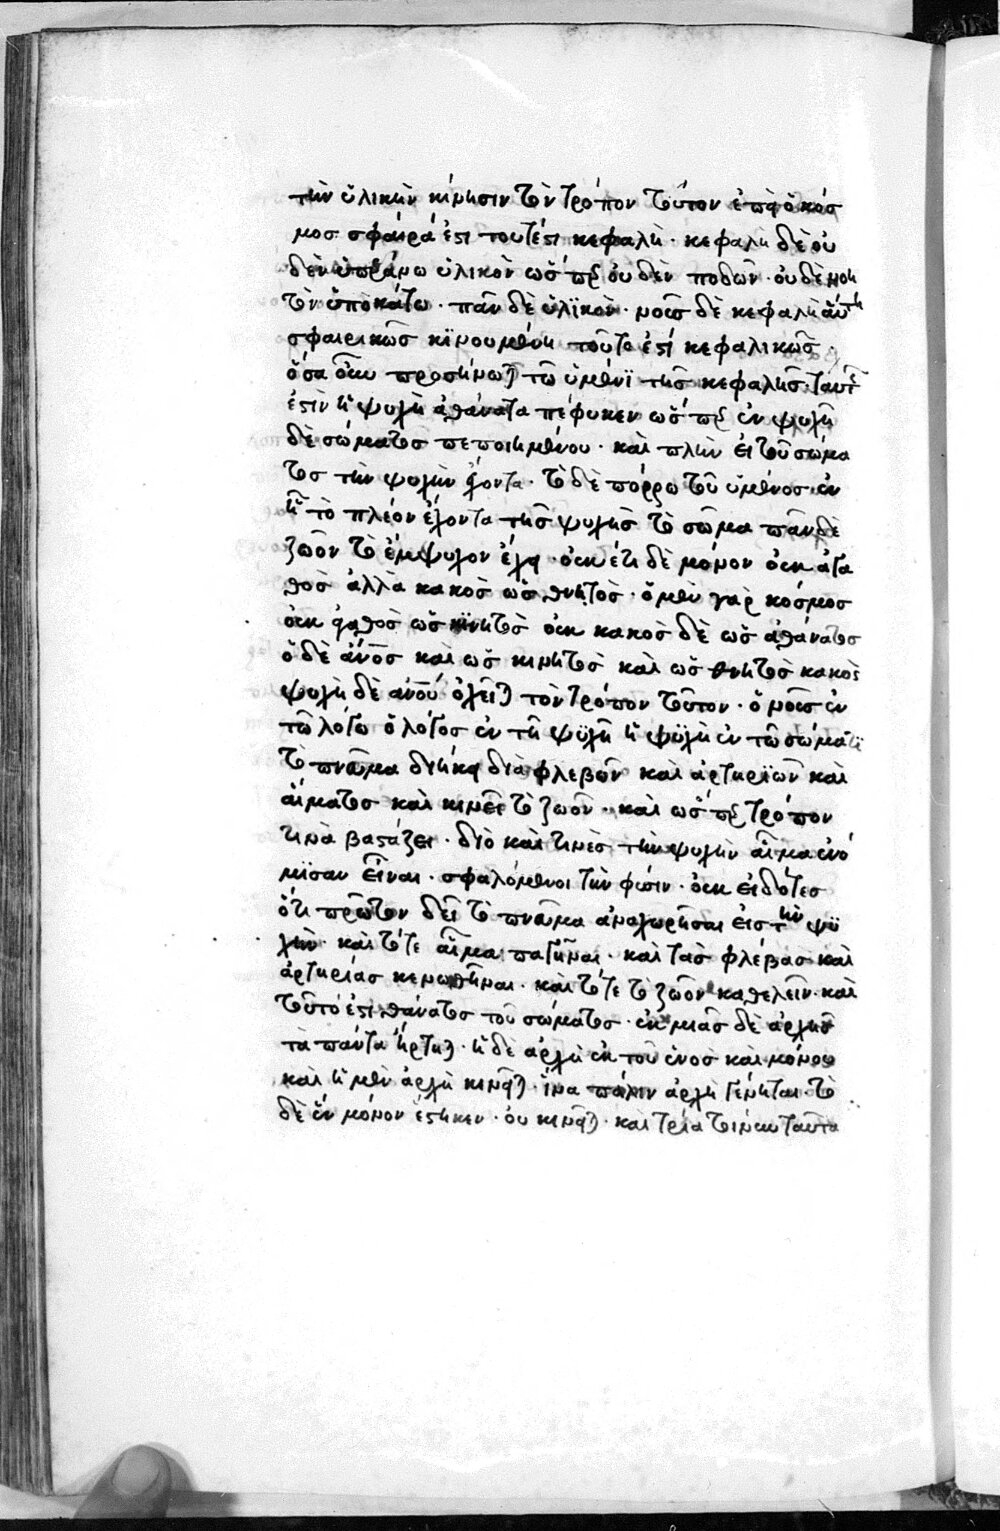 τὴν ὑλικὴν κίνησιν τὸν τρόπον τοῦτον ἐπεὶ ὁ κόσ
μος σφαῖρά ἐστι τουτέστι κεφαλὴ · κεφαλὴ δὲ οὐ
δὲν ὑπεράνω ὑλικὸν ὥσπερ οὐδὲν ποδῶν · οὐδὲ νοη
τὸν ὑποκάτω · πᾶν δὲ ὑλϊκὸν · νοῦς δὲ κεφαλὴ αὐτὴ
σφαιρικῶς κϊνουμένη τοῦτο ἐστί κεφαλικῶς ·
ὅσα οὖν προσήνωται τῶ ὑμένϊ τῆς κεφαλῆς · ταύτης
ἐστὶν ἡ ψυχὴ ἀθάνατα πέφυκεν ὥσπερ ἐν ψυχῆ
δὲ σώματος πεποιημένου · καὶ πλὴν εἰ τοῦ σώμα
τος τὴν ψυχὴν ἔχοντα · τὸ δὲ πόρρω τοῦ ὑμένος ἐν
ἧ τὸ πλέον ἔχοντα τῆς ψυχῆς τὸ σῶμα πᾶν δὲ
ζῶον τὸ ἔμψυχον ἔχει · οὐκ έτι δὲ μόνον οὐκ ἀγα
θὸς ἀλλὰ κακὸς ὡς θνητὸς · ὁ μὲν γὰρ κόσμος
οὐκ ἀγαθὸς ὡς κϊνητὸς οὐκ κακὸς δὲ ὡς ἀθάνατος
ὁ δὲ ἄνος καὶ ὡς κινητὸς καὶ ὡς θνητὸς κακὸς
ψυχὴ δὲ ἀνου ὀχεῖται τὸν τρόπον τοῦτον · ὁ νοῦς ἐν
τῶ λόγω ὁ λόγος ἐν τῆ ψυχῆ ἡ ψυχὴ ἐν τῶ σώματϊ
τὸ πνεῦμα διήκει διὰ φλεβῶν καὶ ἀρτηρϊῶν καὶ
αἵματος καὶ κινεῖ τὸ ζῶον · καὶ ὥσπερ τρόπον
τινὰ βαστάζει · διὸ καὶ τινὲς τὴν ψυχὴν αἷμα ἐνό
μϊσαν εἶναι · σφαλόμενοι τὴν φύσιν · οὐκ εἰδότες
ὅτι πρῶτον δεῖ τὸ πνεῦμα ἀναχωρῆσαι εἰς τὴν ψυ
χὴν · καὶ τότε αἷμα παγῆναι · καὶ τὰς φλέβας καὶ
ἀρτηρίας κενωθῆναι · καὶ τότε τὸ ζῶον καθελεῖν · καὶ
τοῦτό ἐστι θάνατος τοῦ σώματος · ἐκ μιᾶς δὲ ἀρχῆς
τὰ πάντα ἤρτηται · ἡ δὲ ἀρχὴ ἐκ τοῦ ἑνὸς καὶ μόνου
καὶ ἡ μὲν ἀρχὴ κινεῖται · ἵνα πάλιν ἀρχὴ γένηται · τὸ
δὲ ἓν μόνον ἕστηκεν · οὐ κινεῖται · καὶ τρία τοίνυν ταῦτα